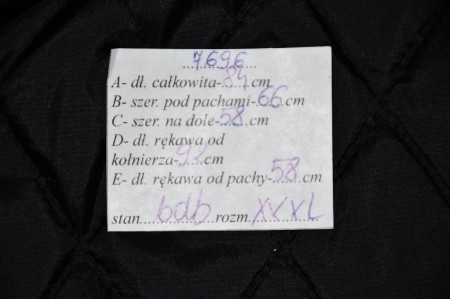 7696
A- dł. całkowita-84 cm
B- szer. pod pachami-66 cm
C- szer. na dole-58 cm
D- dł. rękawa od
kołnierza-92 cm
E- dł. rękawa od pachy-58 cm
stan bdb rozm. XXXL